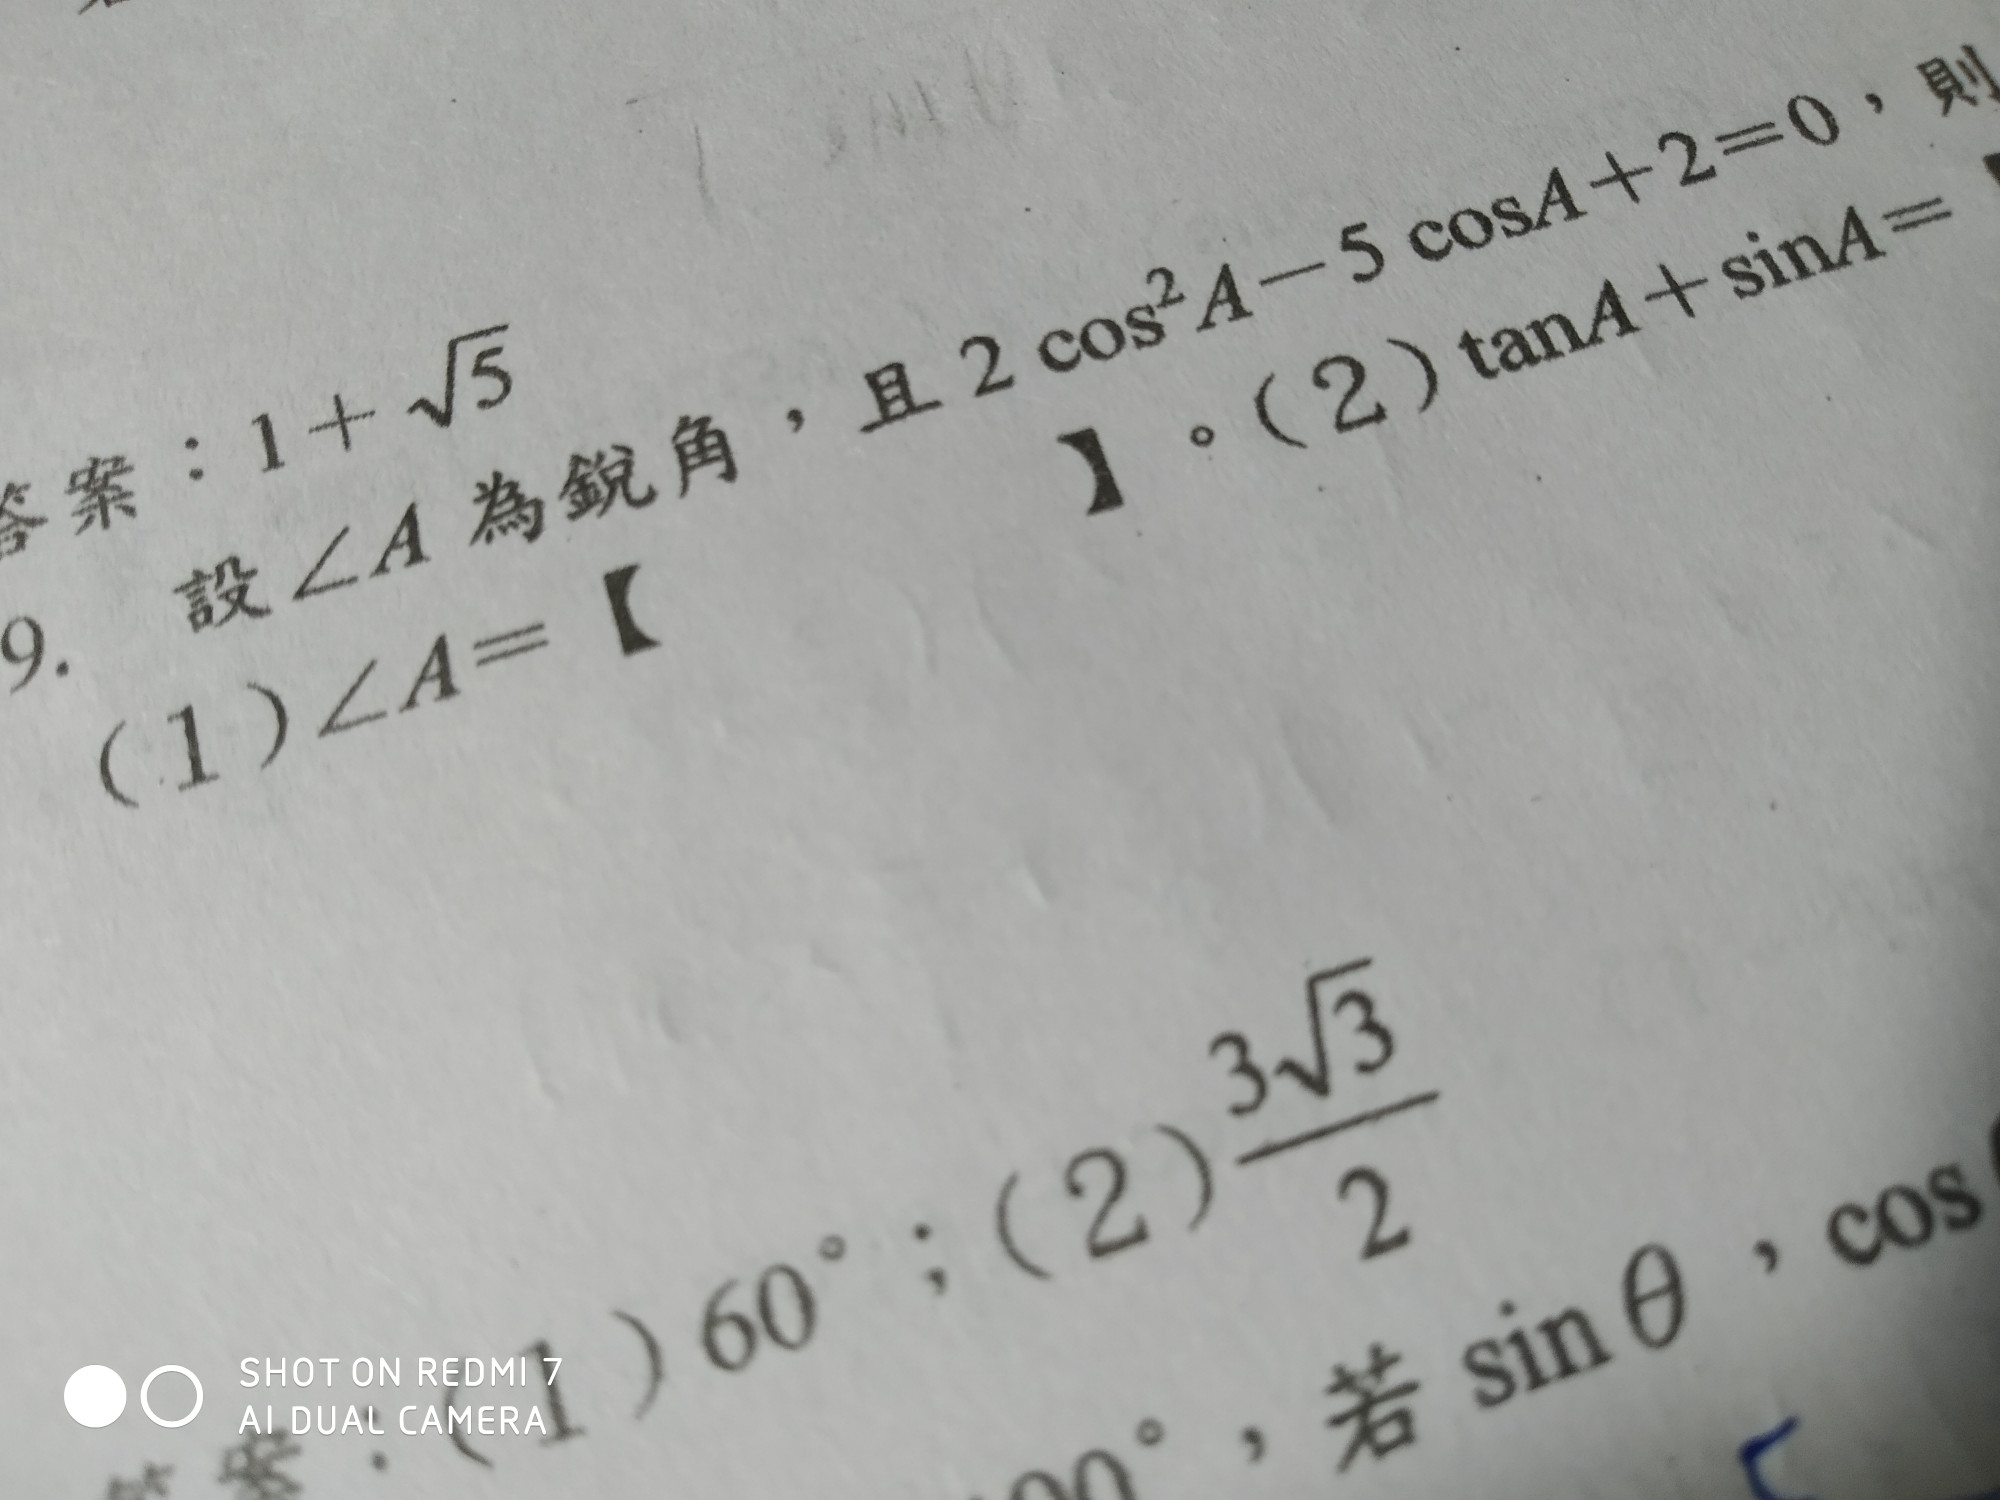 答案：1+√5
9. 設∠A 為銳角，且 2 cos²A－5 cosA＋2＝0，則
(1)∠A＝【 】。(2) tanA＋sinA＝【
答案：(1) 60°；(2) 3√3/2
00°，若 sin θ，cos
SHOT ON REDMI 7
AI DUAL CAMERA